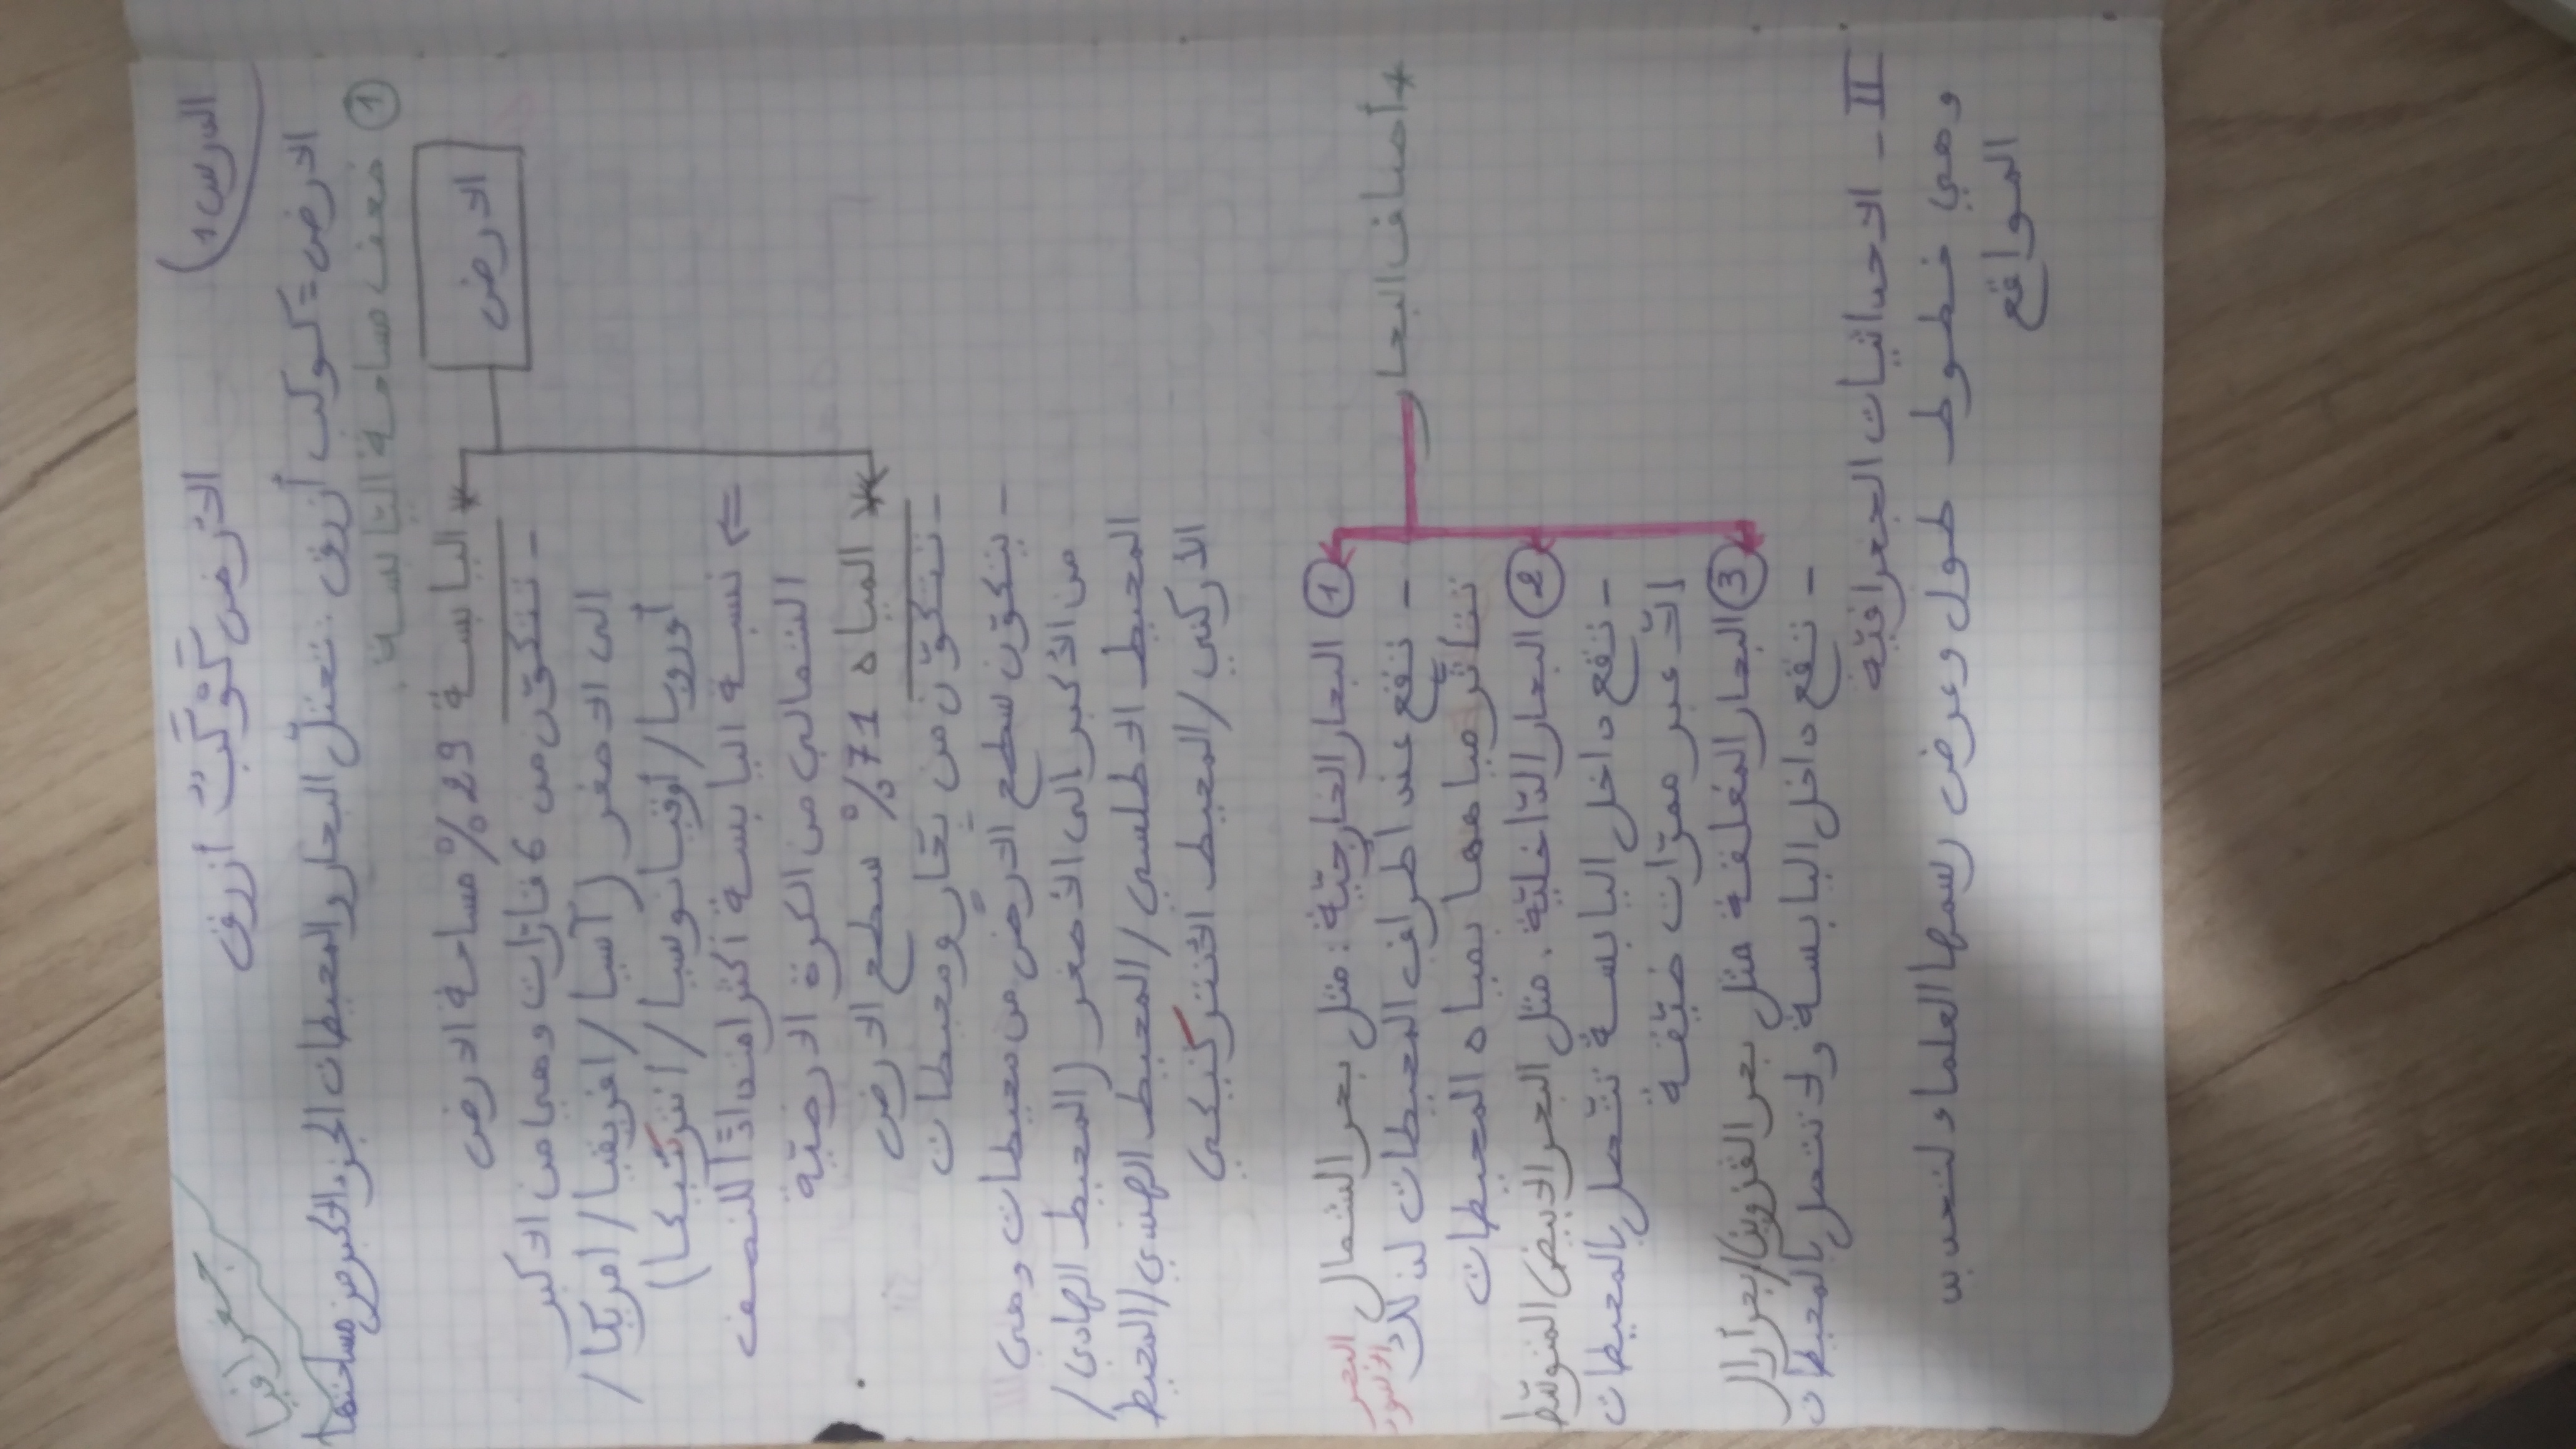 جغرافيا
الدرس 1)
الأرض كَوْكَبٌ أزرق
الارض = كوكب أزرق : تحتلّ البحار والمحيطات الجزء الاكبر من مساحتها
① ضعف مساحة اليابسة
الارض
اليابسة 29% مساحة الارض
- تتكوّن من 6 قارّات وهي من الاكبر
الى الاصغر (آسيا / افريقيا / امريكا /
أوروبا / أوقيانوسيا / انتركتيكا)
⇐ نسبة اليابسة أكثر امتدادًا للنصف
الشمالي من الكرة الارضيّة
المياه 71% سطح الارض
- تتكوّن من بحار ومحيطات
- يتكوّن سطح الارض من محيطات وهي
من الاكبر الى الاصغر (المحيط الهادي /
المحيط الاطلسي / المحيط الهندي / المحيط
الاركتي / المحيط الانتركتيكي
+ أصناف البحار
① البحار الخارجيّة : مثل بحر الشمال
البحر الأسود
- تقع عند اطراف المحيطات لذلك
تتأثّر مياهها بمياه المحيطات
② البحار الدّاخليّة . مثل البحر الابيض المتوسّط
- تقع داخل اليابسة تتّصل بالمحيطات
الّا عبر ممرّات ضيّقة
③ البحار المغلقة مثل بحر القزوين / بحر أرال
- تقع داخل اليابسة ولا تتصل بالمحيطات
II - الاحداثيات الجغرافيّة
وهي خطوط طول وعرض رسمها العلماء لتحديد
المواقع